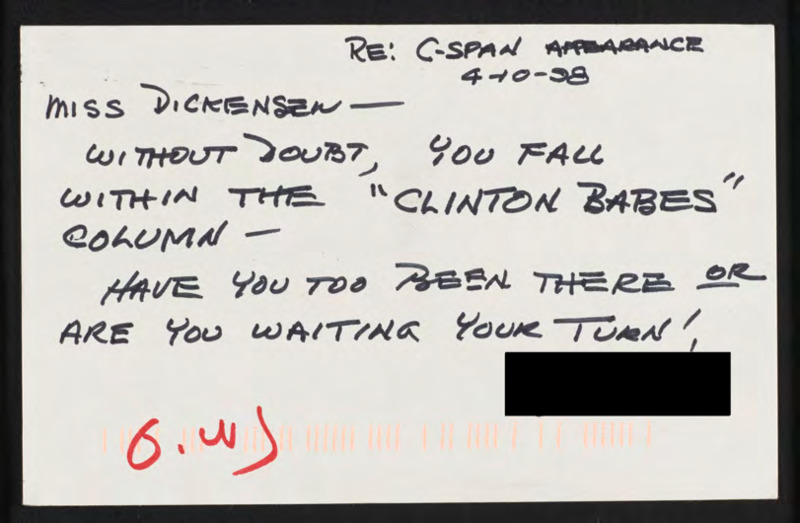 RE: C-SPAN APPEARANCE
4-10-98
MISS DICKENSEN —
WITHOUT DOUBT, YOU FALL
WITHIN THE "CLINTON BABES"
COLUMN —
HAVE YOU TOO BEEN THERE OR
ARE YOU WAITING YOUR TURN!